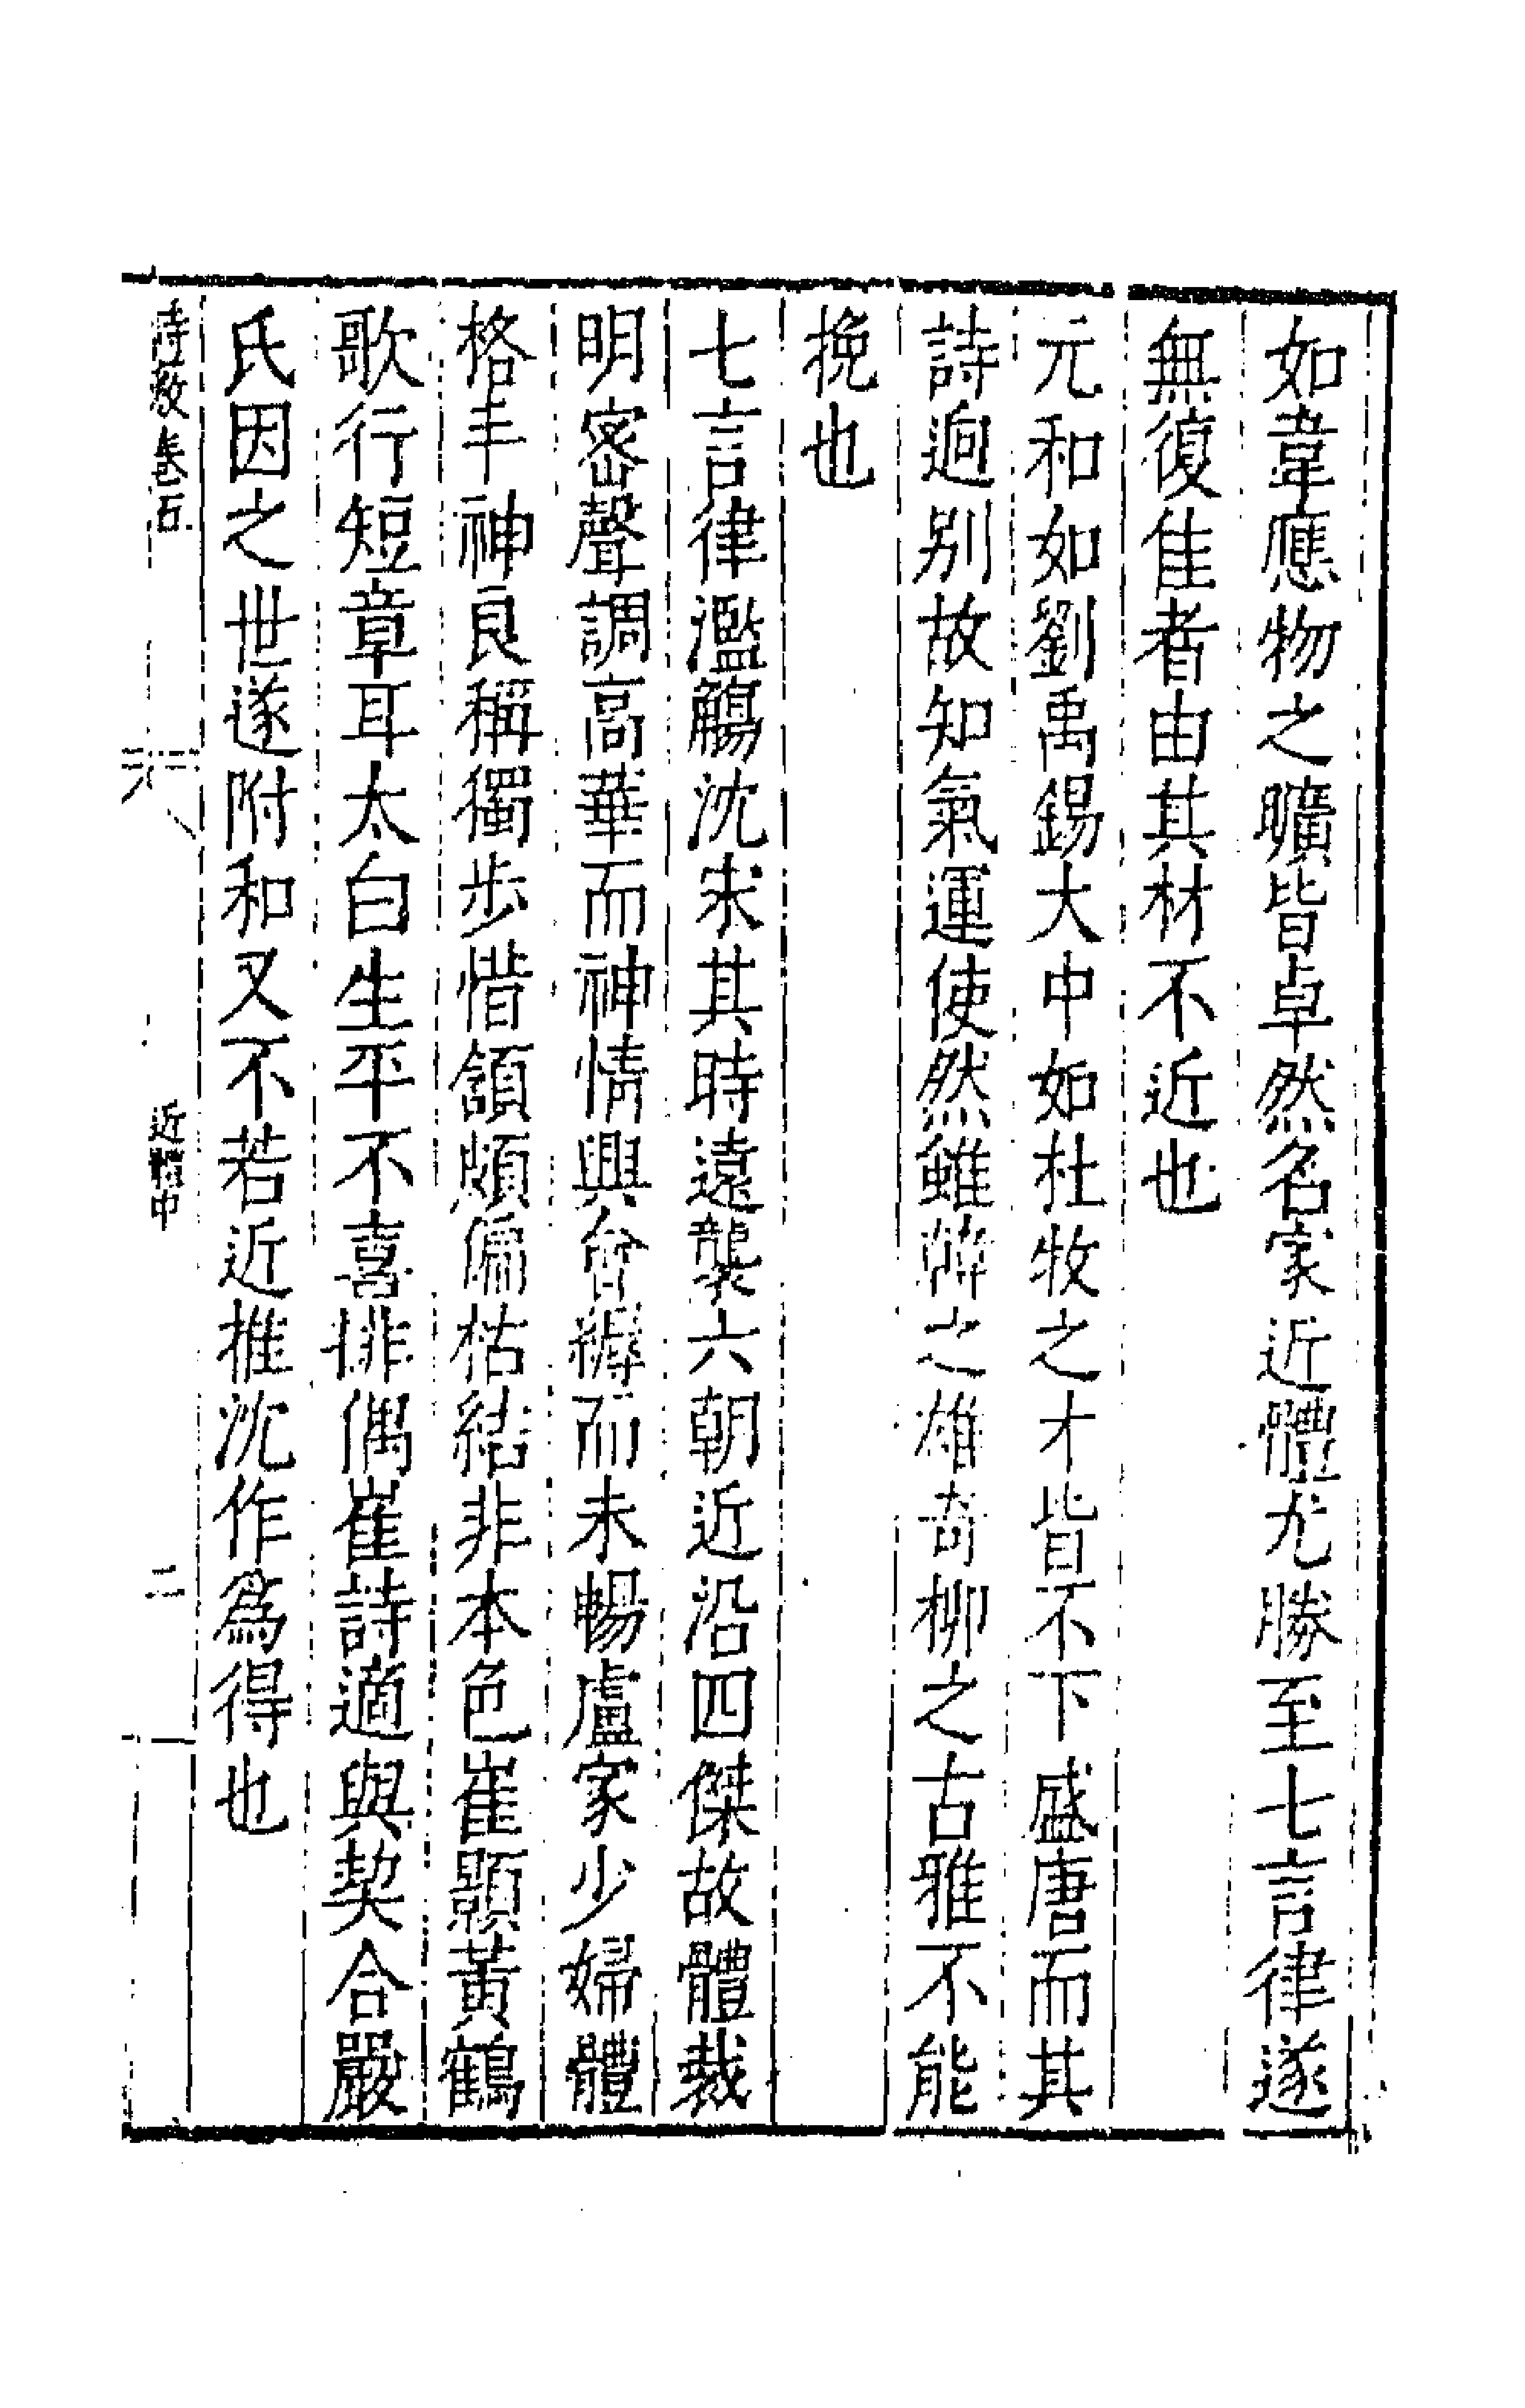 如韋應物之曠皆卓然名家近體尤勝至七言律遂
無復佳者由其材不近也
元和如劉禹錫大中如杜牧之才皆不下盛唐而其
詩迥别故知氣運使然雖韓之雄奇柳之古雅不能
挽也
七言律濫觴沈宋其時遠襲六朝近沿四傑故體裁
明密聲調高華而神情興會縟而未暢盧家少婦體
格丰神良稱獨步惜頷頗偏枯結非本色崔顥黃鶴
歌行短章耳太白生平不喜俳偶崔詩適與契合嚴
氏因之世遂附和又不若近推沈作爲得也
詩藪卷五
近體中
二